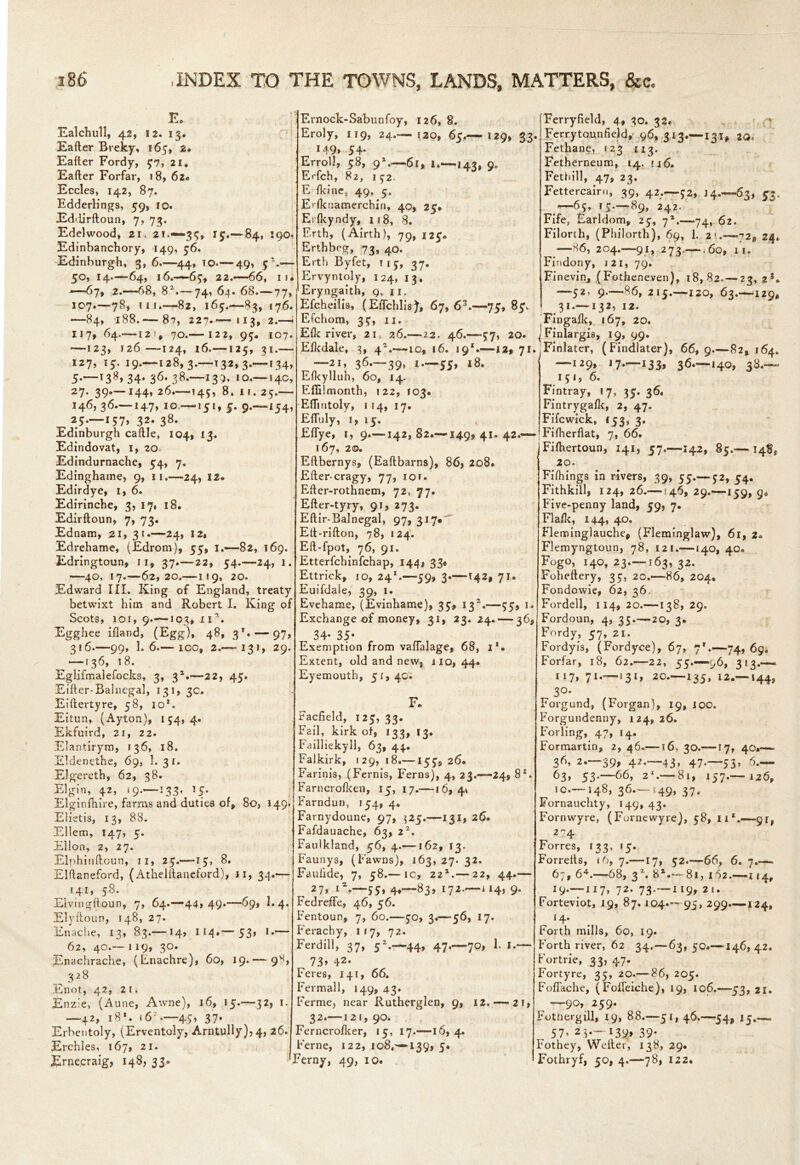 186 INDEX TO THE TOWNS, LANDS, MATTERS, &c.
E.
Ealchull, 42, 12. 13.
Eaſter Breky, 165, 2.
Eaſter Fordy, 57, 21.
Eaſter Forfar, 18, 62.
Eccles, 142, 87.
Edderlings, 59, 10.
Eddirſtoun, 7, 73.
Edelwood, 21, 21.—35, 15.—84, 190.
Edinbanchory, 149, 56.
Edinburgh, 3, 6.—44, 10.—49, 5².—
50, 14.—64, 16.—65, 22.—66, 11.
—67, 2.—68, 8².—74, 64. 68.—77,
107.—78, 111.—82, 165.—83, 176.
—84, 188.—87, 227.—113, 2.—
117, 64.—121, 70.—122, 95. 107.
—123, 126—124, 16.—125, 31.—
127, 15. 19.—128, 3.—132, 3.—134,
5.—138, 34. 36. 38.—139. 10.—140,
27. 39.—144, 26.—145, 8. 11. 25.—
146, 36.—147, 10.—151, 5. 9.—154,
25.—157, 32. 38.
Edinburgh caſtle, 104, 13.
Edindovat, 1, 20.
Edindurnache, 54, 7.
Edinghame, 9, 11.—24, 12.
Edirdye, 1, 6.
Edirinche, 3, 17, 18.
Edirſtoun, 7, 73.
Ednam, 21, 31.—24, 12.
Edrehame, (Edrom), 55, 1.—82, 169.
Edringtoun, 11, 37.—22, 54.—24, 1.
—40, 17.—62, 20.—119, 20.
Edward III. King of England, treaty
betwixt him and Robert I. King of
Scots, 101, 9.—103, 11².
Egghee iſland, (Egg), 48, 3¹.—97,
316.—99, l. 6.—100, 2.—131, 29.
—136, 18.
Eglifmalefocks, 3, 3².—22, 45.
Eiſter-Balnegal, 131, 30.
Eiſtertyre, 58, 10¹.
Eitun, (Ayton), 154, 4.
Ekfuird, 21, 22.
Elantirym, 136, 18.
Eldenethe, 69, l. 31.
Elgereth, 62, 38.
Elgin, 42, 19.—133. 15.
Elginſhire, farms and duties of, 80, 149.
Elietis, 13, 88.
Ellem, 147, 5.
Ellon, 2, 27.
Elphinſtoun, 11, 25.—15, 8.
Elſtaneford, (Athelſtaneford), 11, 34.—
141, 58.
Elvingſtoun, 7, 64.—44, 49.—69, l. 4.
Elyſtoun, 148, 27.
Enache, 13, 83.—14, 114.—53, 1.—
62, 40.—119, 30.
Enachrache, (Enachre), 60, 19.—98,
328
Enot, 42, 21.
Enzie, (Aune, Awne), 16, 15.—32, 1.
—42, 18².—45, 37.
Erbentoly, (Erventoly, Arntully), 4, 26.
Erchles, 167, 21.
Ernecraig, 148, 33.
Ernock-Sabunfoy, 126, 8.
Eroly, 119, 24.—120, 65.—129, 33.
149, 54.
Erroll, 58, 9².—61, 1.—143, 9.
Erſch, 82, 152.
Erſkine, 49, 5.
Erſknamerchin, 40, 25.
Erſkyndy, 118, 8.
Erth, (Airth), 79, 125.
Erthbeg, 73, 40.
Erth Byfet, 115, 37.
Ervyntoly, 124, 13.
Eryngaith, 9, 11.
Eſcheilis, (Eſſchlis), 67, 6³.—75, 85.
Eſchom, 35, 11.
Eſk river, 21, 26.—22. 46.—57, 20.
Eſkdale, 3, 4².—10, 16. 19².—12, 71.
—21, 36.—39, 1.—55, 18.
Eſkylluh, 60, 14.
Eſſilmonth, 122, 103.
Eſſintoly, 114, 17.
Eſſuly, 1, 15.
Eſſye, 1, 9.—142, 82.—149, 41. 42.—
167, 20.
Eſtbernys, (Eaſtbarns), 86, 208.
Eſter-cragy, 77, 101.
Eſter-rothnem, 72, 77.
Eſter-tyry, 91, 273.
Eſtir-Balnegal, 97, 317.
Eſt-rifton, 78, 124.
Eſt-ſpot, 76, 91.
Etterſchinfchap, 144, 33.
Ettrick, 10, 24¹.—59, 3.—142, 71.
Euiſdale, 39, 1.
Evehame, (Evinhame), 35, 13².—55, 1.
Exchange of money, 31, 23. 24.—36,
34. 35.
Exemption from vaſſalage, 68, 1².
Extent, old and new, 110, 44.
Eyemouth, 51, 40.
F.
Facfield, 125, 33.
Fail, kirk of, 133, 13.
Failliekyll, 63, 44.
Falkirk, 129, 18.—155, 26.
Farinis, (Fernis, Ferns), 4, 23.—24, 8¹.
Farncroſken, 15, 17.—16, 4.
Farndun, 154, 4.
Farnydoune, 97, 325.—131, 26.
Faſdauache, 63, 2².
Faulkland, 56, 4.—162, 13.
Faunys, (Fawns), 163, 27. 32.
Fauſide, 7, 58.—10, 22².—22, 44.—
27, 1².—55, 4.—83, 172.—114, 9.
Fedreffe, 46, 56.
Fentoun, 7, 60.—50, 3.—56, 17.
Ferachy, 117, 72.
Ferdill, 37, 5².—44, 47.—70, l. 1.—
73, 42.
Feres, 141, 66.
Fermall, 149, 43.
Ferme, near Rutherglen, 9, 12.—21,
32.—121, 90.
Ferncroſker, 15, 17.—16, 4.
Ferne, 122, 108.—139, 5.
Ferny, 49, 10.
Ferryfield, 4, 30. 32.
Ferrytounfield, 96, 313.—131, 20.
Fethane, 123 113.
Fetherneum, 14, 116.
Fethill, 47, 23.
Fettercairn, 39, 42.—52, 14.—63, 53.
—65, 15.—89, 242.
Fife, Earldom, 25, 7².—74, 62.
Filorth, (Philorth), 69, l. 21.—72, 24.
—86, 204.—91, 273.—160, 11.
Findony, 121, 79.
Finevin, (Fotheneven), 18, 82.—23, 2².
—52, 9.—86, 215.—120, 63.—129,
31.—132, 12.
Fingaſk, 167, 20.
Finlargis, 19, 99.
Finlater, (Findlater), 66, 9.—82, 164.
—129, 17.—133, 36.—140, 38.—
151, 6.
Fintray, 17, 35. 36.
Fintrygaſk, 2, 47.
Fiſcewick, 153, 3.
Fiſherflat, 7, 66.
Fiſhertoun, 141, 57.—142, 85.—148,
20.
Fiſhings in rivers, 39, 55.—52, 54.
Fithkill, 124, 26.—146, 29.—159, 9.
Five-penny land, 59, 7.
Flaſk, 144, 40.
Fleminglauche, (Fleminglaw), 61, 2.
Flemyngtoun, 78, 121.—140, 40.
Fogo, 140, 23.—163, 32.
Foheſtery, 35, 20.—86, 204.
Fondowie, 62, 36.
Fordell, 114, 20.—138, 29.
Fordoun, 4, 35.—20, 3.
Fordy, 57, 21.
Fordyis, (Fordyce), 67, 7¹.—74, 69.
Forfar, 18, 62.—22, 55.—96, 313.—
117, 71.—131, 20.—135, 12.—144,
30.
Forgund, (Forgan), 19, 100.
Forgundenny, 124, 26.
Forling, 47, 14.
Formartin, 2, 46.—16, 30.—17, 40.—
36, 2.—39, 42.—43, 47.—53, 6.—
63, 53.—66, 2¹.—81, 157.—126,
10.—148, 36.—149, 37.
Fornauchty, 149, 43.
Fornwyre, (Fornewyre), 58, 11².—91,
274
Forres, 133, 15.
Forreſts, 16, 7.—17, 52.—66, 6. 7.—
67, 6⁴.—68, 3². 8².—81, 162.—114,
19.—117, 72. 73.—119, 21.
Forteviot, 19, 87. 104.—95, 299.—124,
14.
Forth mills, 60, 19.
Forth river, 62 34.—63, 50.—146, 42.
Fortrie, 33, 47.
Fortyre, 35, 20.—86, 205.
Foſſache, (Foſſeiche), 19, 106.—53, 21.
—90, 259.
Fothergill, 19, 88.—51, 46.—54, 15.—
57, 23.—139, 39.
Fothey, Weſter, 138, 29.
Fothryf, 50, 4.—78, 122.